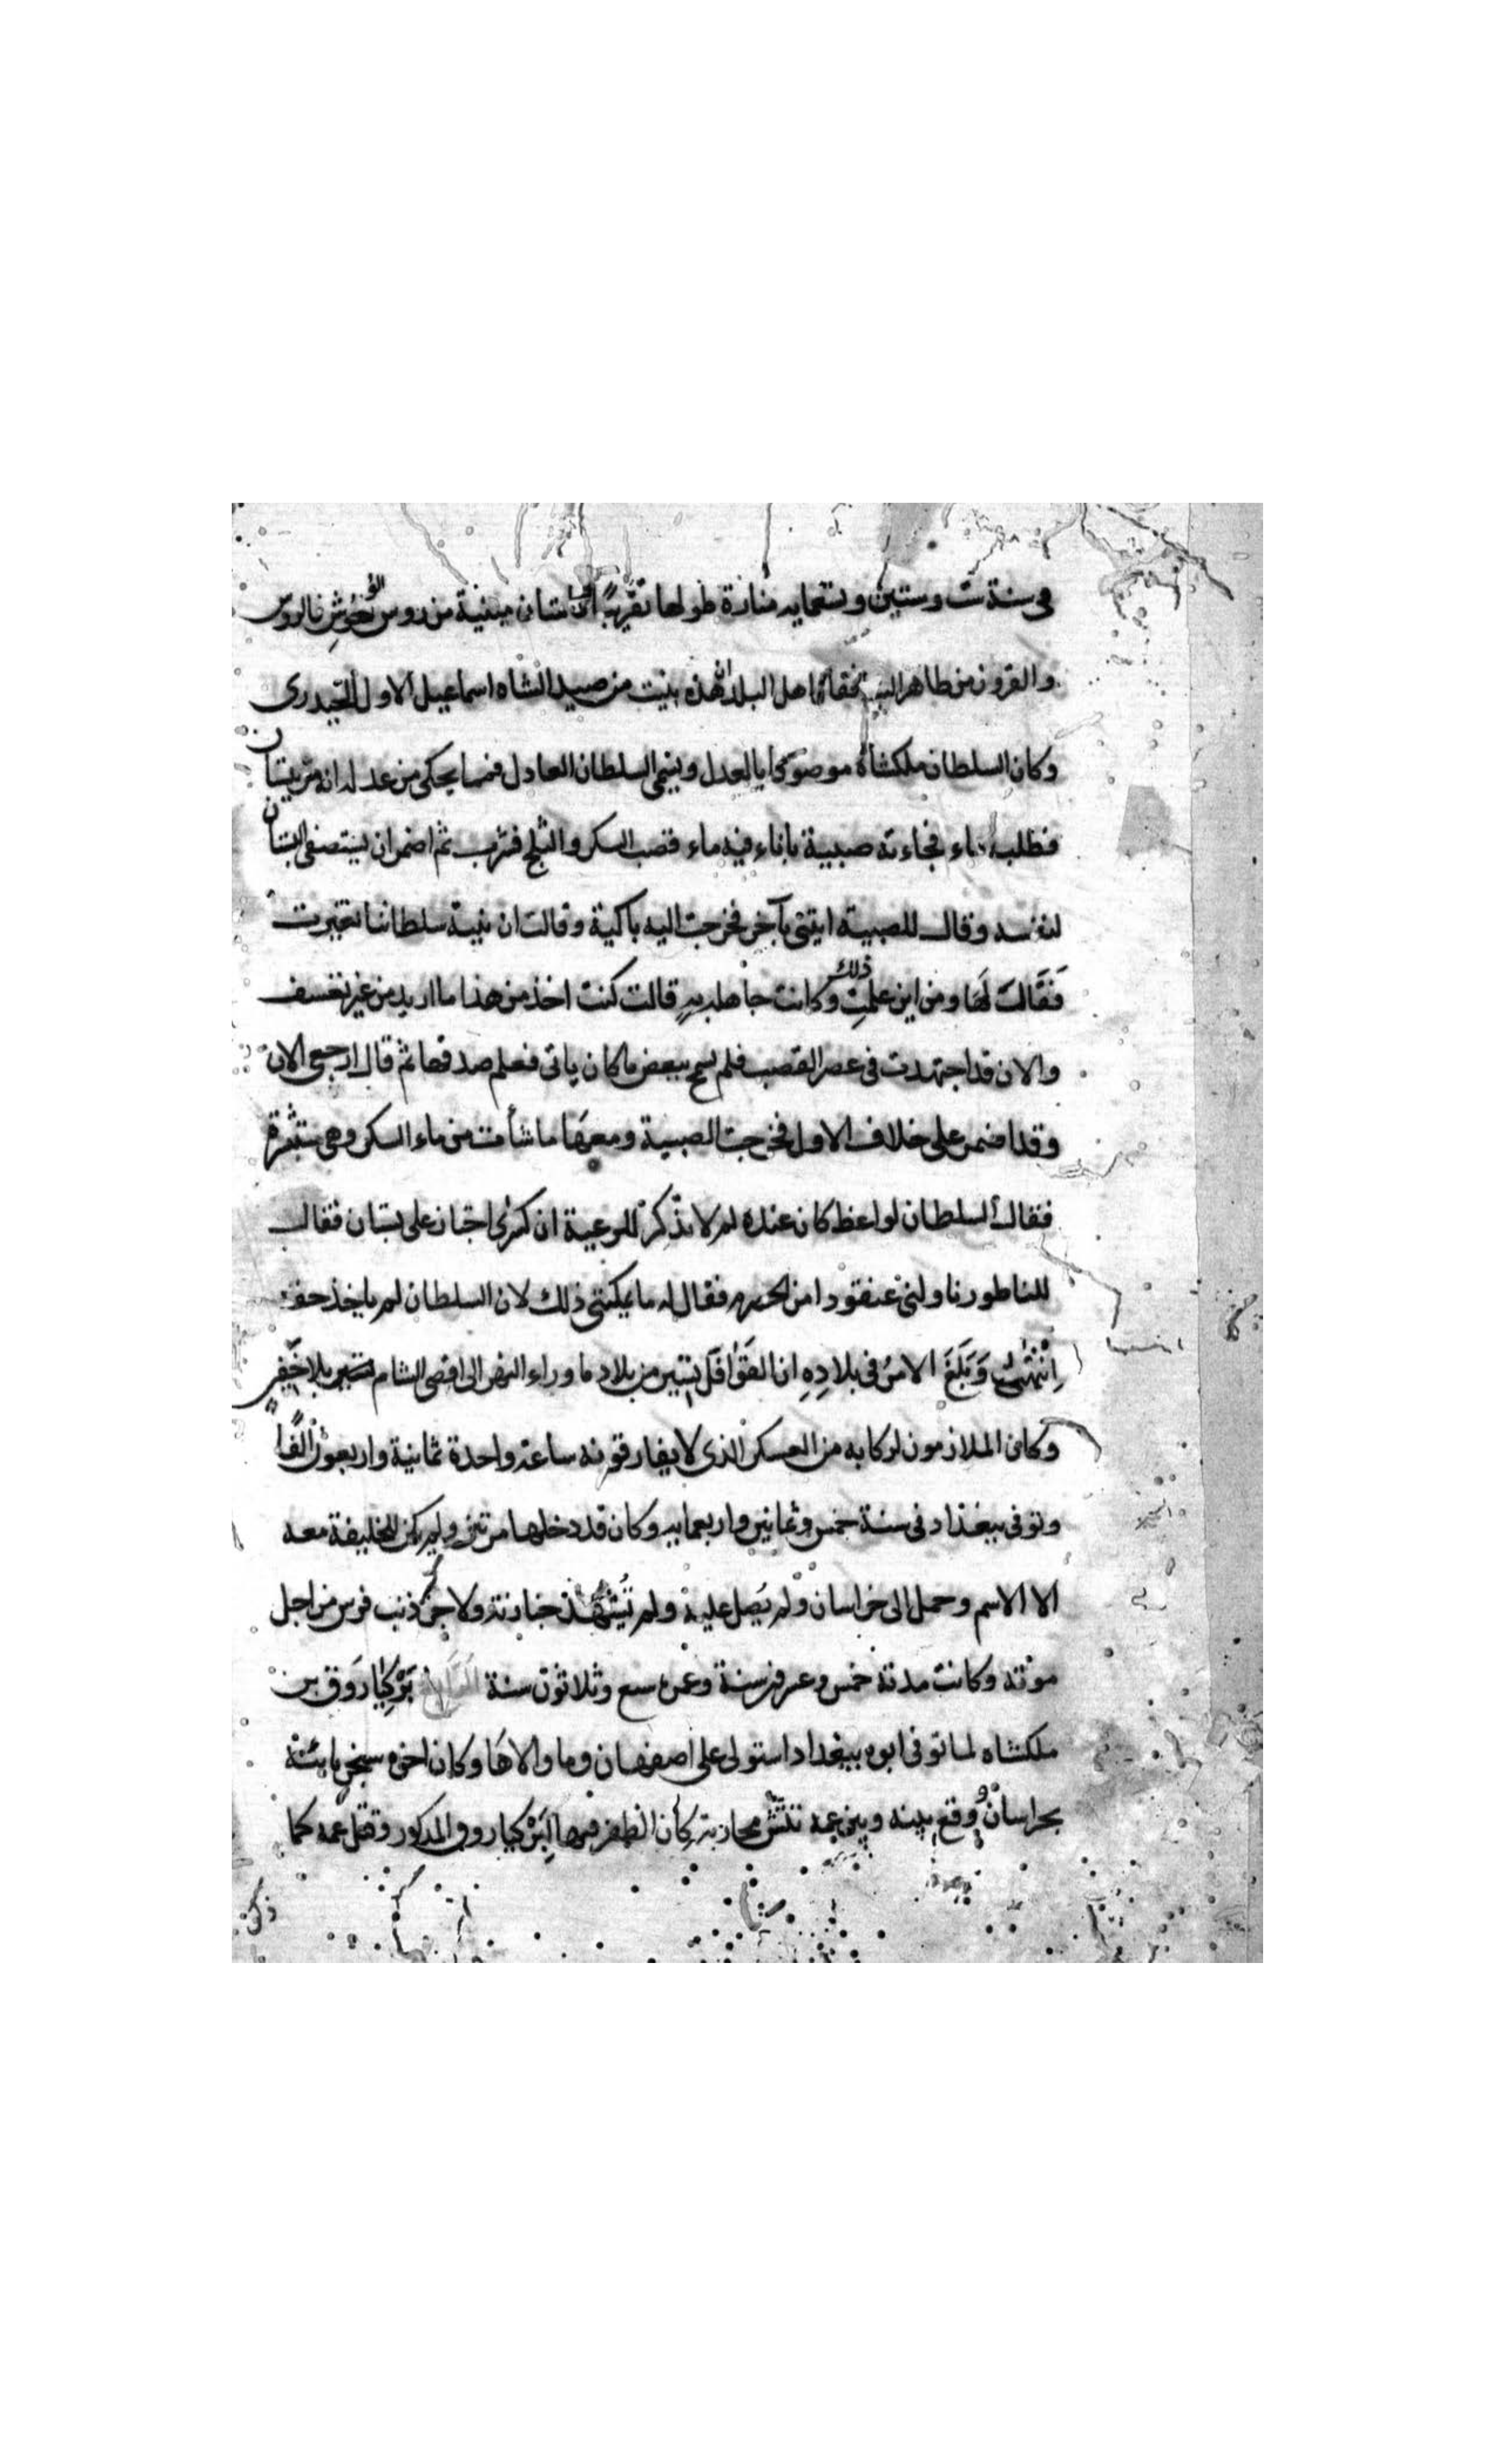 في سنة ست وستين وتسعمايه منارة طولها تقريبًا قامتان مبنية من روس الوحوش فالروس
والقرون من ظاهر البنا فقال اهل البلد هذه بنيت من صيد الشاه اسماعيل الاول الحيدرى
وكان السلطان ملكشاه موصوفا بالعدل ويسمى السلطان العادل فمما يحكى من عدله انه مر ببستان
فطلب ماء فجاءته صبية باناء فيه ماء قصب السكر والثلج فشرب ثم اضمر ان يستصفي البستان
لنفسه وقال للصبية ايتنى بآخر فخرجت اليه باكية وقالت ان نية سلطاننا تغيرت
فقالت لها ومن اين علمت ذلك وكانت جاهله به قالت كنت اخذ من هذا ما اريد من غير تعسف
والان قد اجتهدت فى عصر القصب فلم يسمح ببعض ما كان ياتى فعلم صدقها ثم قال ارجعى الان
وقد اضمر على خلاف الاول فخرجت الصبية ومعها ما شأت من ماء السكر وهى مستبشرة
فقال السلطان لواعظ كان عنده لم لا تذكر للرعية ان كسرى اجتاز على بستان فقال
للناطور ناولنى عنقودا من الحصرم فقال له ما يمكننى ذلك لان السلطان لم ياخذ حقه
انتهى وَبَلَغَ الامن فى بلادِهِ ان القوافل تسير من بلاد ما وراء النهر الى اقصى الشام بلا خفير
وكان الملازمون لركابه من العسكر الذى لا يفارقونه ساعة واحدة ثمانية واربعون الفًا
وتوفى ببغداد فى سنة خمس وثمانين واربعمايه وكان قد دخلها مرتين ولم يكن للخليفة معه
الا الاسم وحمل الى خراسان ولم يصل عليه ولم تشهد جنازته ولا جز ذنب فرس من اجل
موته وكانت مدته خمس وعشرين سنة وعمره سبع وثلاثون سنة بَرْكِيَارَوق بن
ملكشاه لما توفى ابوه ببغداد استولى على اصفهان وما والاها وكان اخوه سنجر نائبه
بخراسان ووقع بينه وبين عمه تتش محاربة كان الظفر فيها لبركياروق المذكور وقتل عمه كما